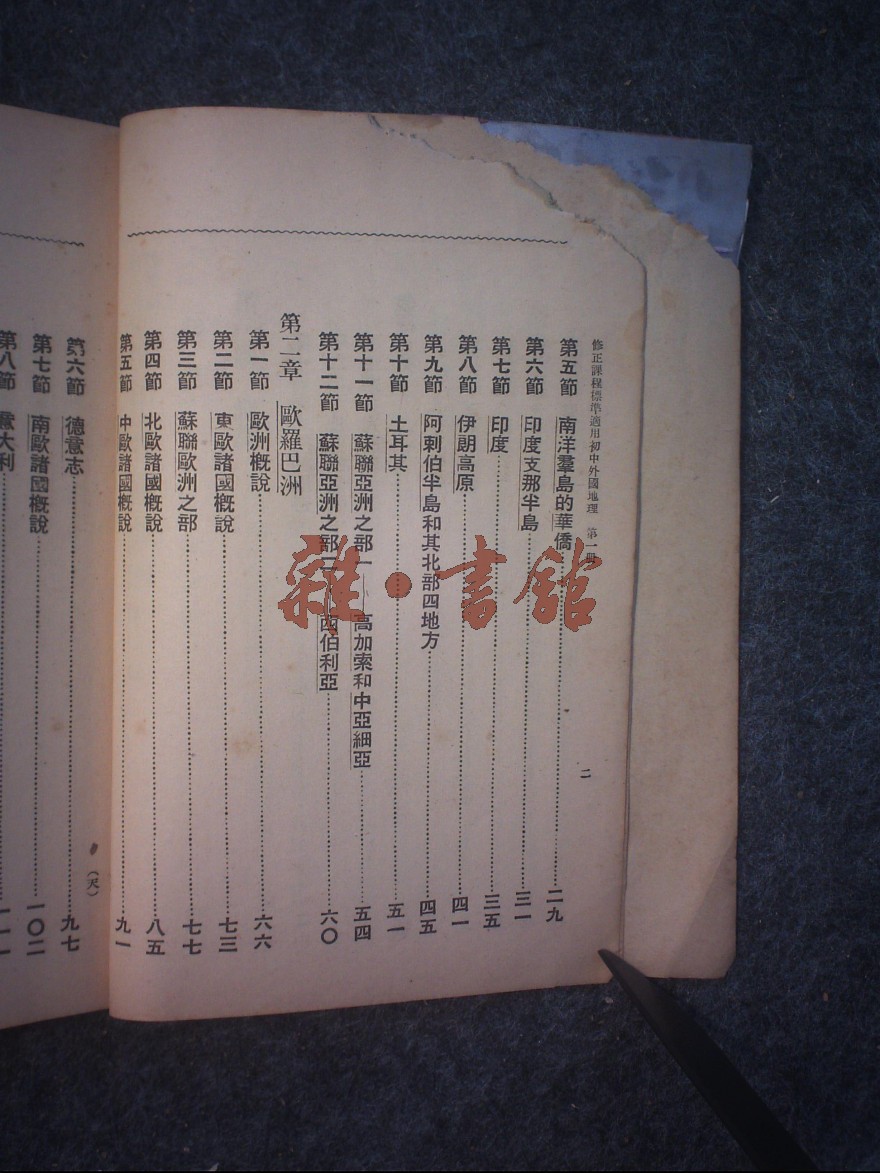 修正課程標準適用初中外國地理 第一冊
二
第五節 南洋羣島的華僑 二九
第六節 印度支那半島 三一
第七節 印度 三五
第八節 伊朗高原 四一
第九節 阿剌伯半島和其北部四地方 四五
第十節 土耳其 五一
第十一節 蘇聯亞洲之部一 高加索和中亞細亞 五四
第十二節 蘇聯亞洲之部二 西伯利亞 六〇
第二章 歐羅巴洲
第一節 歐洲概說 六六
第二節 東歐諸國概說 七三
第三節 蘇聯歐洲之部 七七
第四節 北歐諸國概說 八五
第五節 中歐諸國概說 九一
(天)
第六節 德意志 九七
第七節 南歐諸國概說 一〇二
第八節 意大利
雜·書館